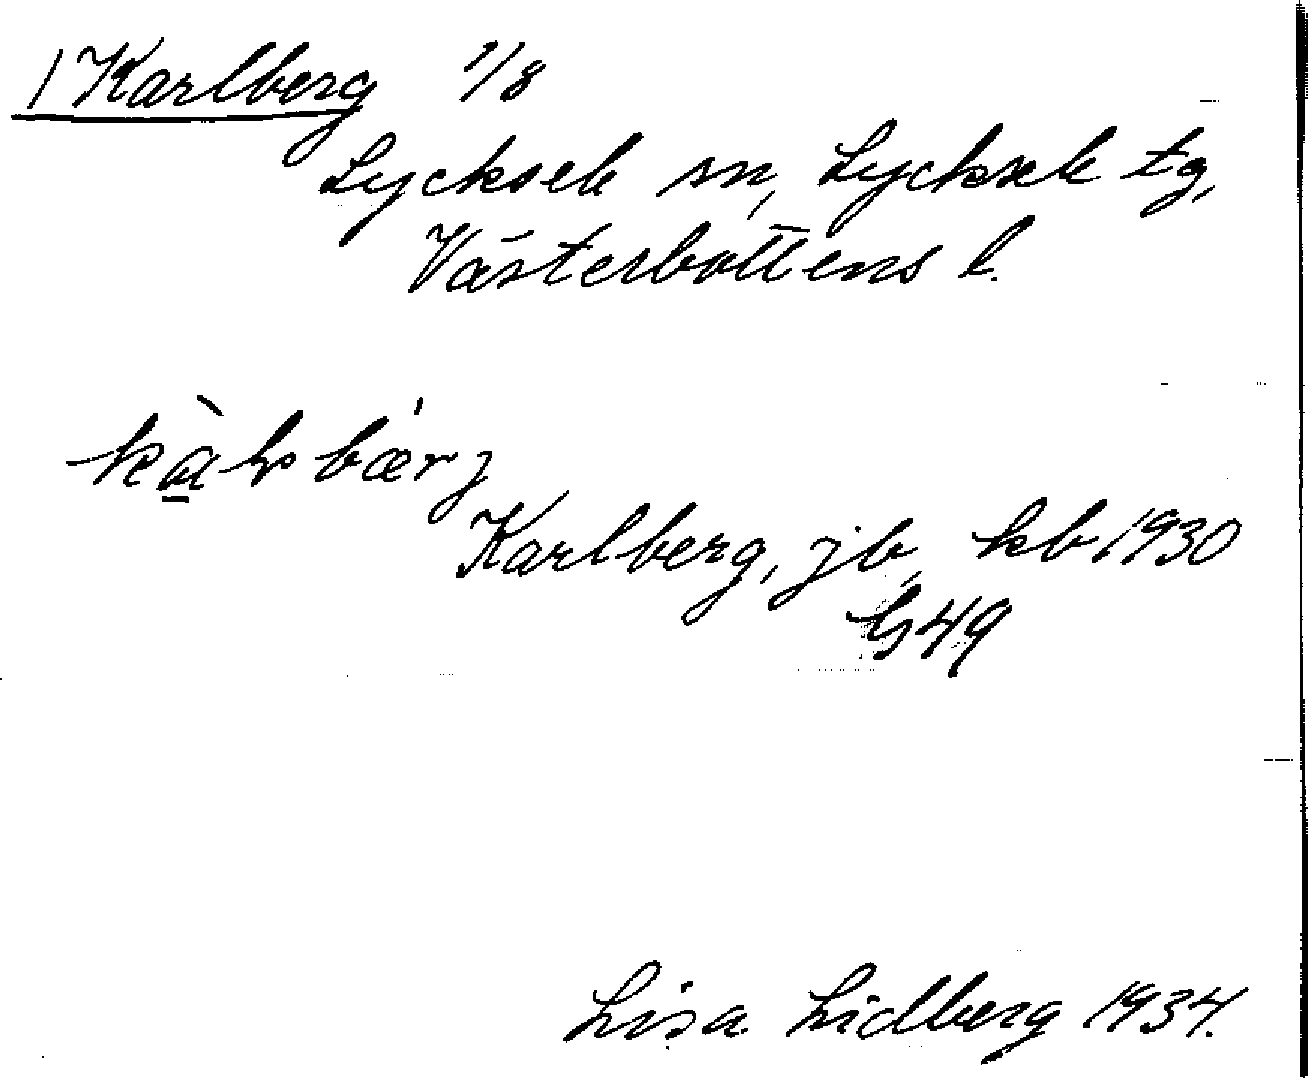 / Karlberg 1/8
Lycksele sn, Lycksele tg,
Västerbottens l.
Karlberg, jb, kb 1930
G49
Lisa Lidberg 1934.